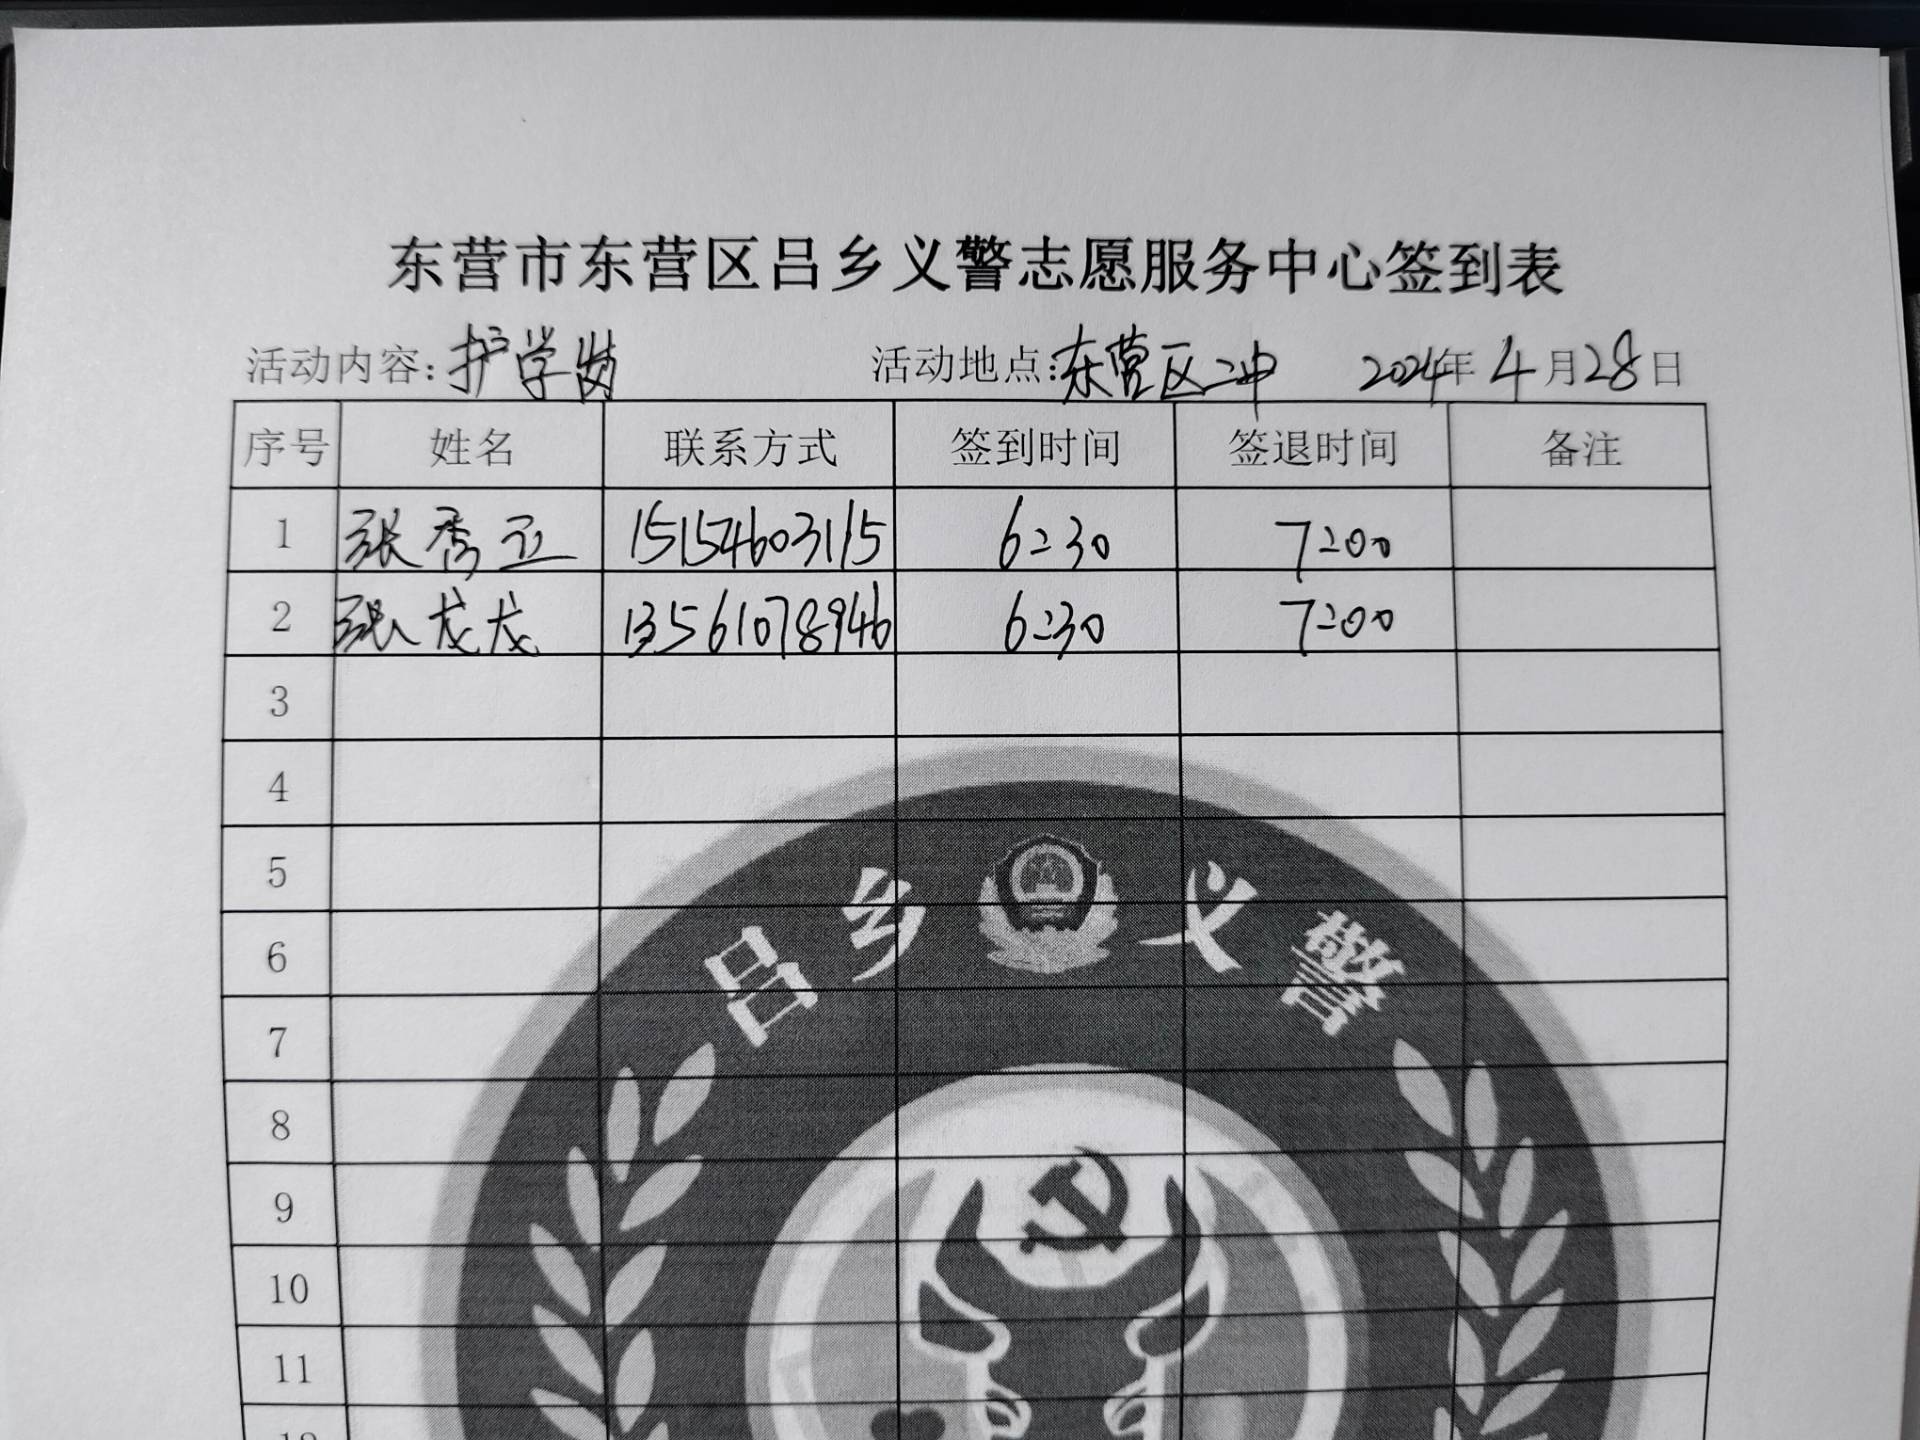 东营市东营区吕乡义警志愿服务中心签到表
活动内容：护学岗 活动地点：东营区二中 2024年4月28日
序号 姓名 联系方式 签到时间 签退时间 备注
1 张秀卫 15154603115 6:30 7:00
2 张龙龙 13561078946 6:30 7:00
3
4
5
6
7
8
9
10
11
吕乡义警